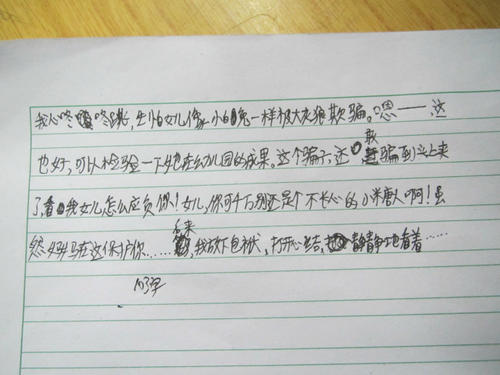 我心咚咚跳，生怕女儿像小白兔一样被大灰狼欺骗。嗯——这
也好，可以检验一下她在幼儿园的成果。这个骗子，还敢骗到头上来
了，看我女儿怎么应负你！女儿，你可千万别还是个不长心的小米唐人啊！虽
然妈妈在这保护你……后来，我放下包袱，打开心结，静静地看着……